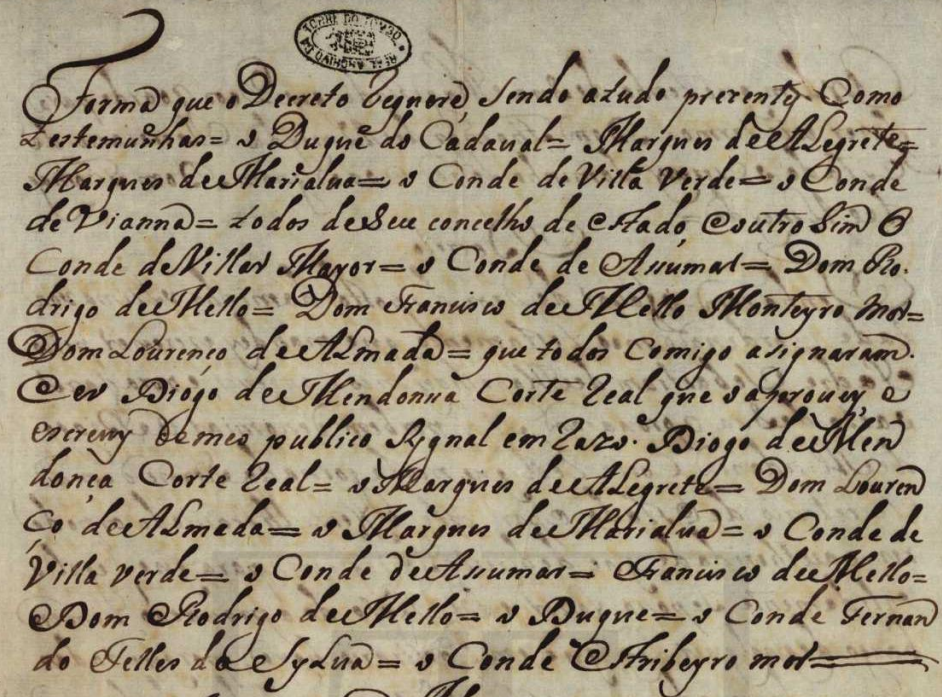 TORRE DO TOMBO
REAL ARCHIVO DA
Forma que o Decreto requere sendo atudo prezentes Como
testemunhas= o Duque do Cadaval= Marques de Alegrete=
Marques de Marialua= o Conde de Villa Verde= o Conde
de Vianna= todos de seu concelho de estado, e outro sim o
Conde de Villar Mayor= o Conde de Assumar= Dom Ro.
drigo de Mello= Dom Francisco de Mello Monteyro mor=
Dom Lourenço de Almada= que todos Comigo asignaram.
E eu Diogo de Mendonça Corte Real que o aprouey e
escreuy de meo publico Sygnal em razo. Diogo de Men
donça Corte Real= o Marques de Alegrete= Dom Louren
ço de Almada= o Marques de Marialua= o Conde de
Villa verde= o Conde de Assumar= Francisco de Mello=
Dom Rodrigo de Mello= o Duque= o Conde Fernan
do Telles da Sylua= o Conde Estribeyro mor=